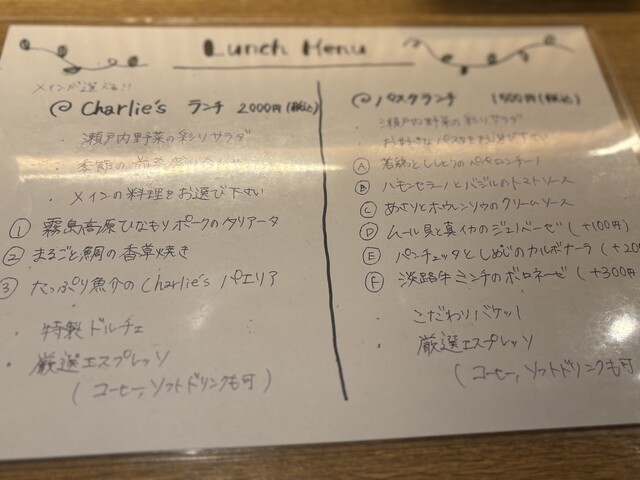 Lunch Menu
メインが選べる!!
@ Charlie's ランチ 2000円(税込)
・瀬戸内野菜の彩りサラダ
・季節の前菜
・メインの料理をお選び下さい
① 霧島高原ひなもりポークのタリアータ
② まるごと鯛の香草焼き
③ たっぷり魚介の Charlie's パエリア
・特製ドルチェ
・厳選エスプレッソ
(コーヒー,ソフトドリンクも可)
@ パスタランチ 1500円(税込)
・瀬戸内野菜の彩りサラダ
・お好きなパスタをお選び下さい
Ⓐ 若鶏とししとうのペペロンチーノ
Ⓑ ハモンセラーノとバジルのトマトソース
Ⓒ あさりとホウレンソウのクリームソース
Ⓓ ムール貝と真イカのジェノベーゼ (+100円)
Ⓔ パンチェッタとしめじのカルボナーラ (+20
Ⓕ 淡路牛ミンチのボロネーゼ (+300円
・こだわりバケット
・厳選エスプレッソ
(コーヒー,ソフトドリンクも可